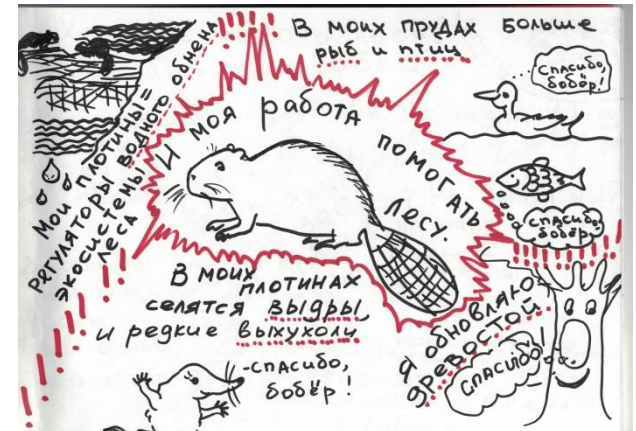 В моих прудах больше
рыб и птиц
Спасибо,
бобёр!
Мои плотины =
регуляторы водного обмена
экосистемы
леса
И моя работа
помогать
лесу.
Спасибо,
бобёр!
В моих плотинах
селятся выдры
и редкие выхухоли
-спасибо,
бобёр!
Я обновляю
древостой
Спасибо!